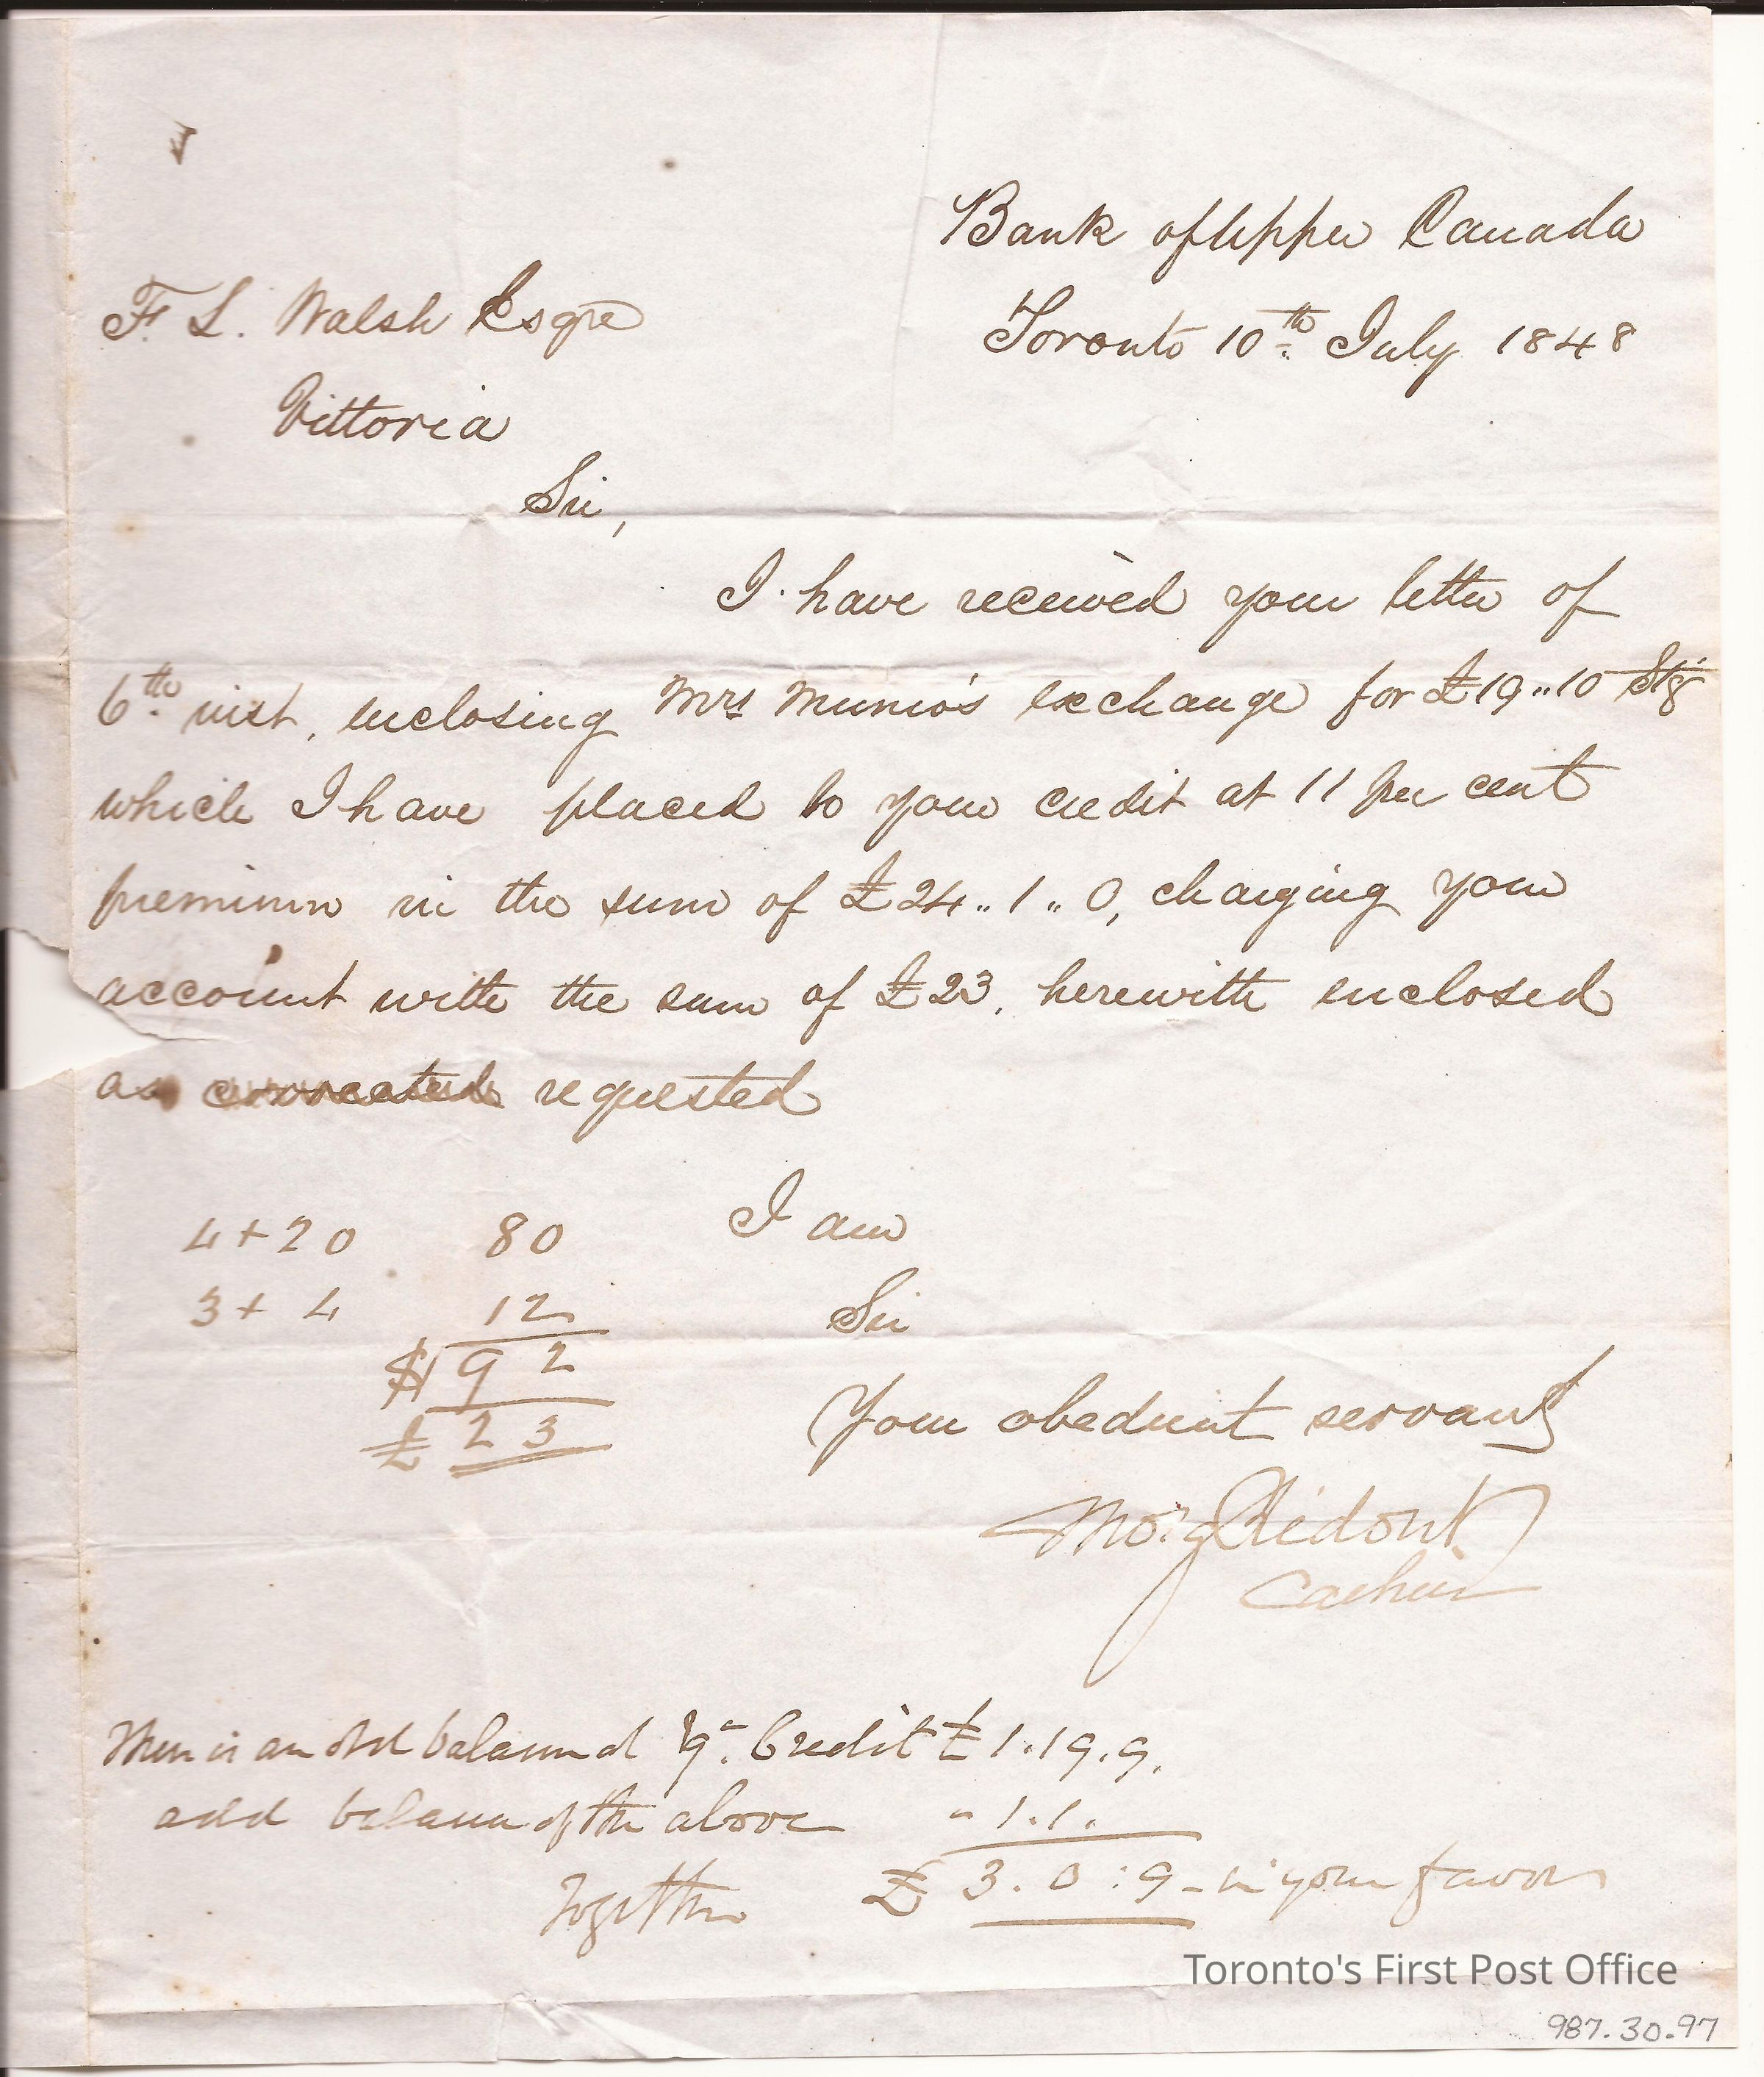 Bank of Upper Canada
Toronto 10th July 1848
F. L. Walsh Esqre
Vittoria
Sir,
I have received your letter of
6th inst, enclosing Mrs Munro's exchange for £19..10 Stg
which I have placed to your credit at 11 per cent
premium in the sum of £24..1..0, charging your
account with the sum of £23. herewith enclosed
as requested
4+20 80
3+ 4 12
$ 92
£ 23
I am
Sir
Your obedient servant
Thos. G. Ridout
Cashier
There is an old balance at yr. Credit £1.19.9.
add balance of the above " 1.1.
Together £3.0:9 - in your favor
Toronto's First Post Office
987.30.97